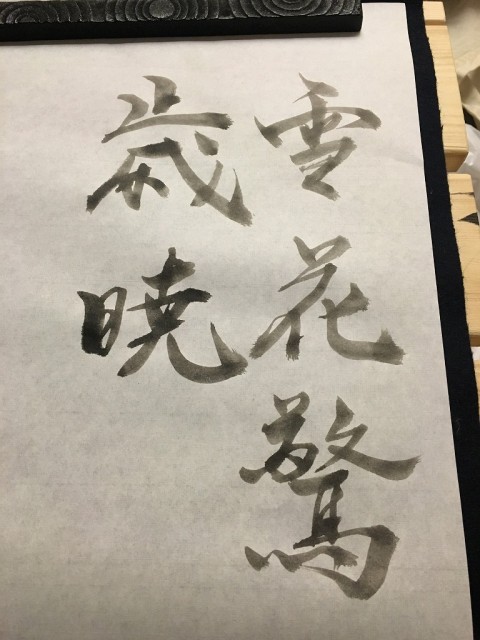 雪花驚
歳暁